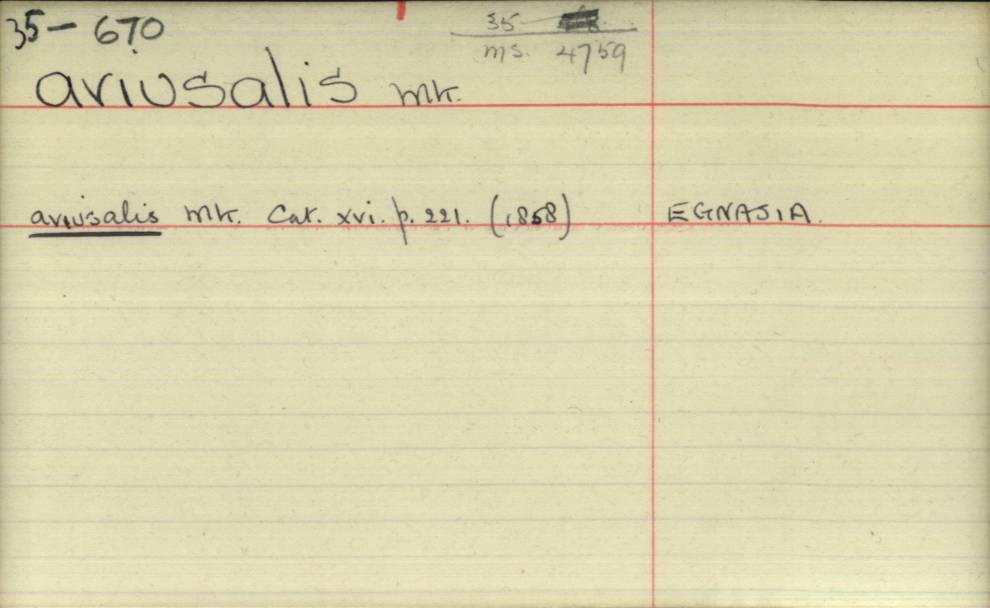 35 – 670
35
ms. 4759
ariusalis Mk.
ariusalis Mk. Cat. xvi. p. 221. (1858) EGNASIA.